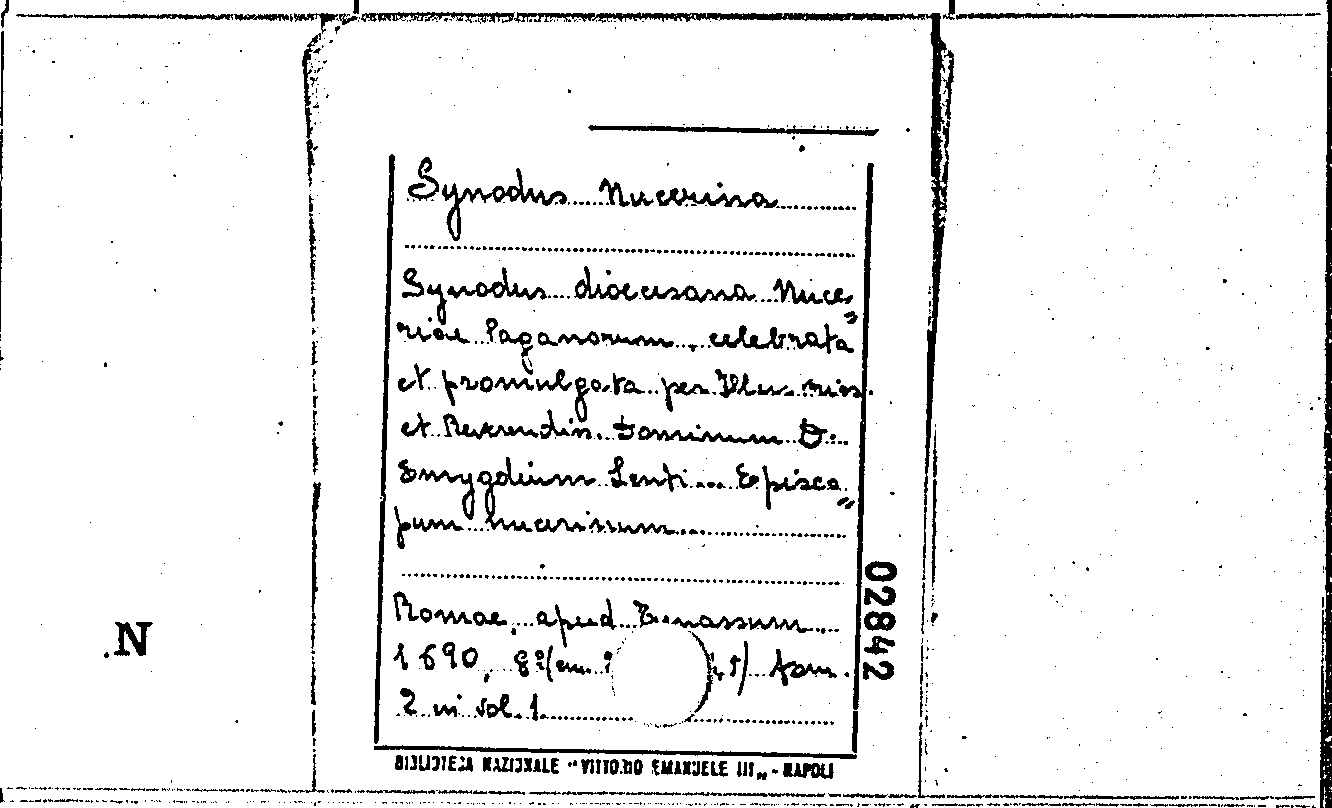 Synodus Nucerina
Synodus diocesana Nuce=
riae Paganorum, celebrata
et promulgata per Illu. mios.
et Reverendis. Dominum D.
Emygdium Lenti... Episco=
pum nucerinum...
Romae, apud Zenassum...
1690, 8°(cm. tom.
2 in vol. 1.
BIBLIOTECA NAZIONALE "VITTORIO EMANUELE III„ - NAPOLI
02842
.N